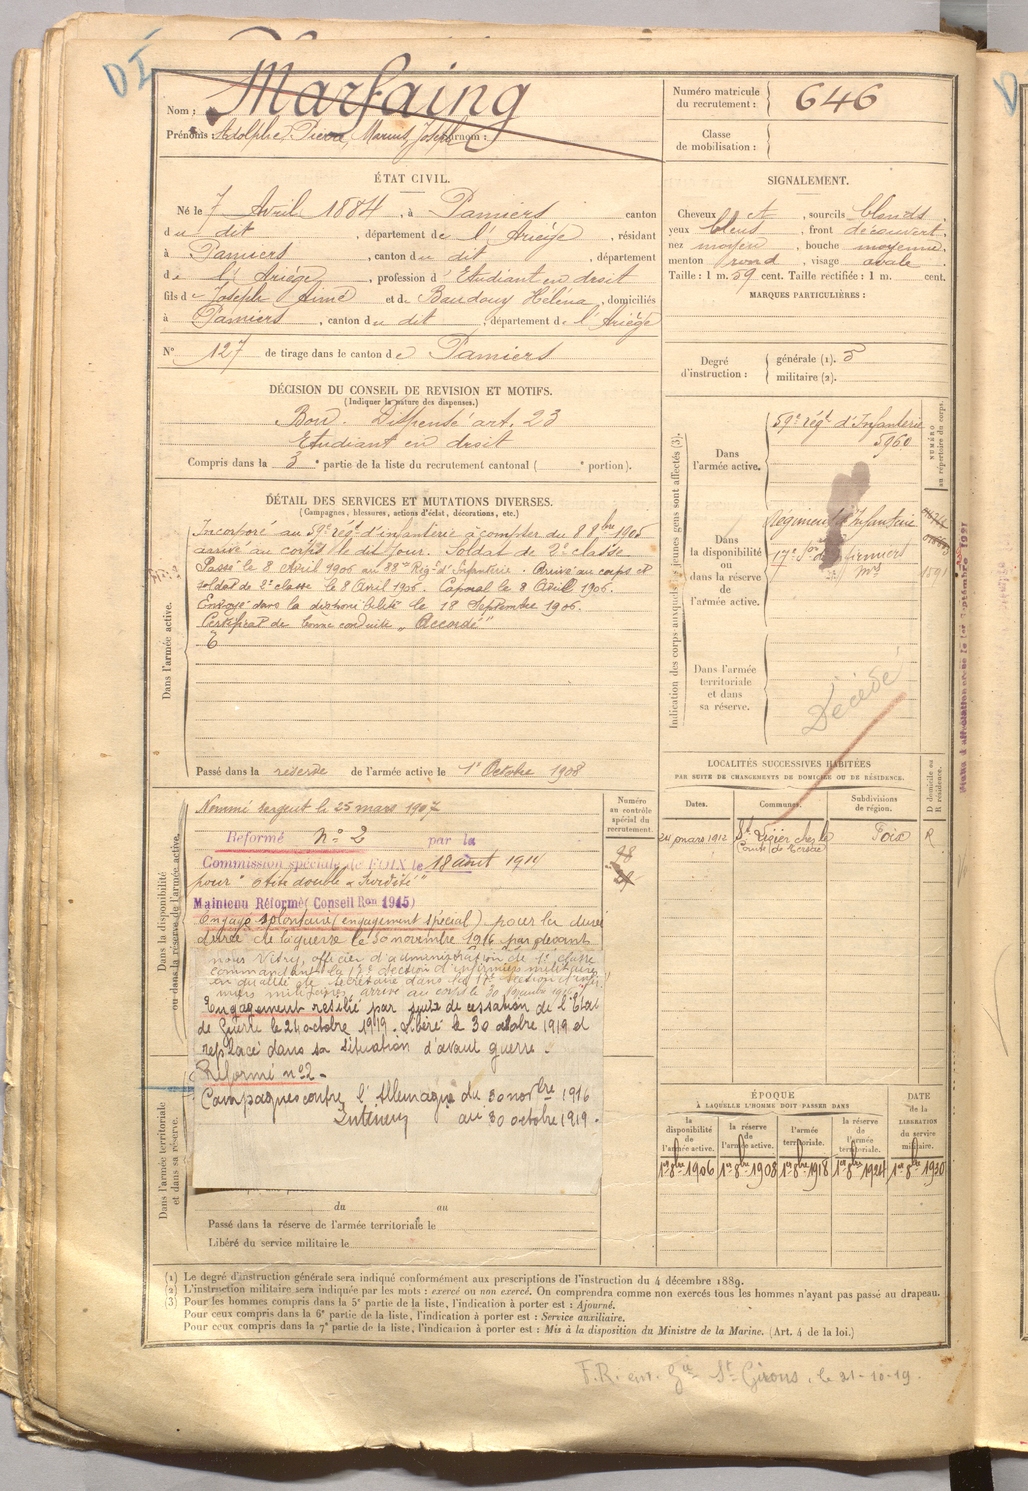 DI
Nom : Marfaing
Prénoms : Adolphe, Pierre, Marius, Joseph
Numéro matricule du recrutement : 646
Classe de mobilisation :
ÉTAT CIVIL.
Né le 7 Avril 1884, à Pamiers canton
du dit, département de l'Ariége, résidant
à Pamiers, canton du dit, département
de l'Ariége, profession d'Etudiant en droit
fils de Joseph Aimé et de Baudouy Hélène, domiciliés
à Pamiers, canton du dit, département de l'Ariége
N° 127 de tirage dans le canton de Pamiers
SIGNALEMENT.
Cheveux et, sourcils blonds
yeux bleus, front découvert,
nez moyen, bouche moyenne,
menton rond, visage ovale
Taille : 1 m. 59 cent. Taille rectifiée : 1 m. cent.
MARQUES PARTICULIÈRES :
Degré d'instruction :
générale (1). 3
militaire (2).
DÉCISION DU CONSEIL DE REVISION ET MOTIFS.
(Indiquer la nature des dispenses.)
Bon. Dispensé art. 23
Etudiant en droit
Compris dans la 3e partie de la liste du recrutement cantonal ( e portion).
DÉTAIL DES SERVICES ET MUTATIONS DIVERSES.
(Campagnes, blessures, actions d'éclat, décorations, etc.)
Dans l'armée active.
Incorporé au 59e régt d'infanterie à compter du 8 8bre 1905
arrivé au corps le dit jour. Soldat de 2e classe
Passé le 8 Avril 1906 au 88me Régt d'Infanterie. Arrivé au corps et
soldat de 2e classe le 8 Avril 1906. Caporal le 8 Avril 1906.
Envoyé dans la disponibilité le 18 Septembre 1906.
Certificat de bonne conduite "Accordé"
Passé dans la réserve de l'armée active le 1r Octobre 1908
Indication des corps auxquels les jeunes gens sont affectés (3).
NUMÉRO au répertoire du corps.
Dans l'armée active.
59e régt d'Infanterie
5960
Dans la disponibilité ou dans la réserve de l'armée active.
Régiment d'Infanterie
17e Son d'Infirmiers
mres
1591
Dans l'armée territoriale et dans sa réserve.
Décédé
Dans la disponibilité ou dans la réserve de l'armée active.
Nommé sergent le 25 mars 1907
Réformé n° 2 par la
Commission spéciale de FOIX le 18 août 1914
pour "otite double & surdité"
Maintenu Réformé (Conseil Ron 1915)
Engagé volontaire (engagement spécial) pour la durée
durée de la guerre le 30 novembre 1916 par devant
nous Vitry, officier d'administration de 1e classe
commandant la 17e section d'infirmiers militaires
en qualité de secrétaire dans la 17e section d'infir
miers militaires, arrivé au corps le 30 novembre 1916
Engagement résilié par suite de cessation de l'Etat
de Guerre le 24 octobre 1919. Libéré le 30 octobre 1919 et
replacé dans sa situation d'avant guerre.
Réformé n° 2 -
Campagnes contre l'Allemagne du 30 novbre 1916
Intérieur au 30 octobre 1919.
Numéro au contrôle spécial du recrutement.
Dans l'armée territoriale et dans sa réserve.
du au
Passé dans la réserve de l'armée territoriale le
Libéré du service militaire le
LOCALITÉS SUCCESSIVES HABITÉES
PAR SUITE DE CHANGEMENTS DE DOMICILE OU DE RÉSIDENCE.
D domicile ou R résidence.
Dates. Communes. Subdivisions de région.
24 mars 1912 St Lizier chez le Foix R
Comte de Terssac
ÉPOQUE
À LAQUELLE L'HOMME DOIT PASSER DANS
DATE de la LIBÉRATION du service militaire.
la disponibilité de l'armée active. la réserve de l'armée active. l'armée territoriale. la réserve de l'armée territoriale.
1er 8bre 1906 1er 8bre 1908 1er 8bre 1918 1er 8bre 1924 1er 8bre 1930
(1) Le degré d'instruction générale sera indiqué conformément aux prescriptions de l'instruction du 4 décembre 1889.
(2) L'instruction militaire sera indiquée par les mots : exercé ou non exercé. On comprendra comme non exercés tous les hommes n'ayant pas passé au drapeau.
(3) Pour les hommes compris dans la 5e partie de la liste, l'indication à porter est : Ajourné.
Pour ceux compris dans la 6e partie de la liste, l'indication à porter est : Service auxiliaire.
Pour ceux compris dans la 7e partie de la liste, l'indication à porter est : Mis à la disposition du Ministre de la Marine. (Art. 4 de la loi.)
F.R. em. Gie St Girons, le 21-10-19.